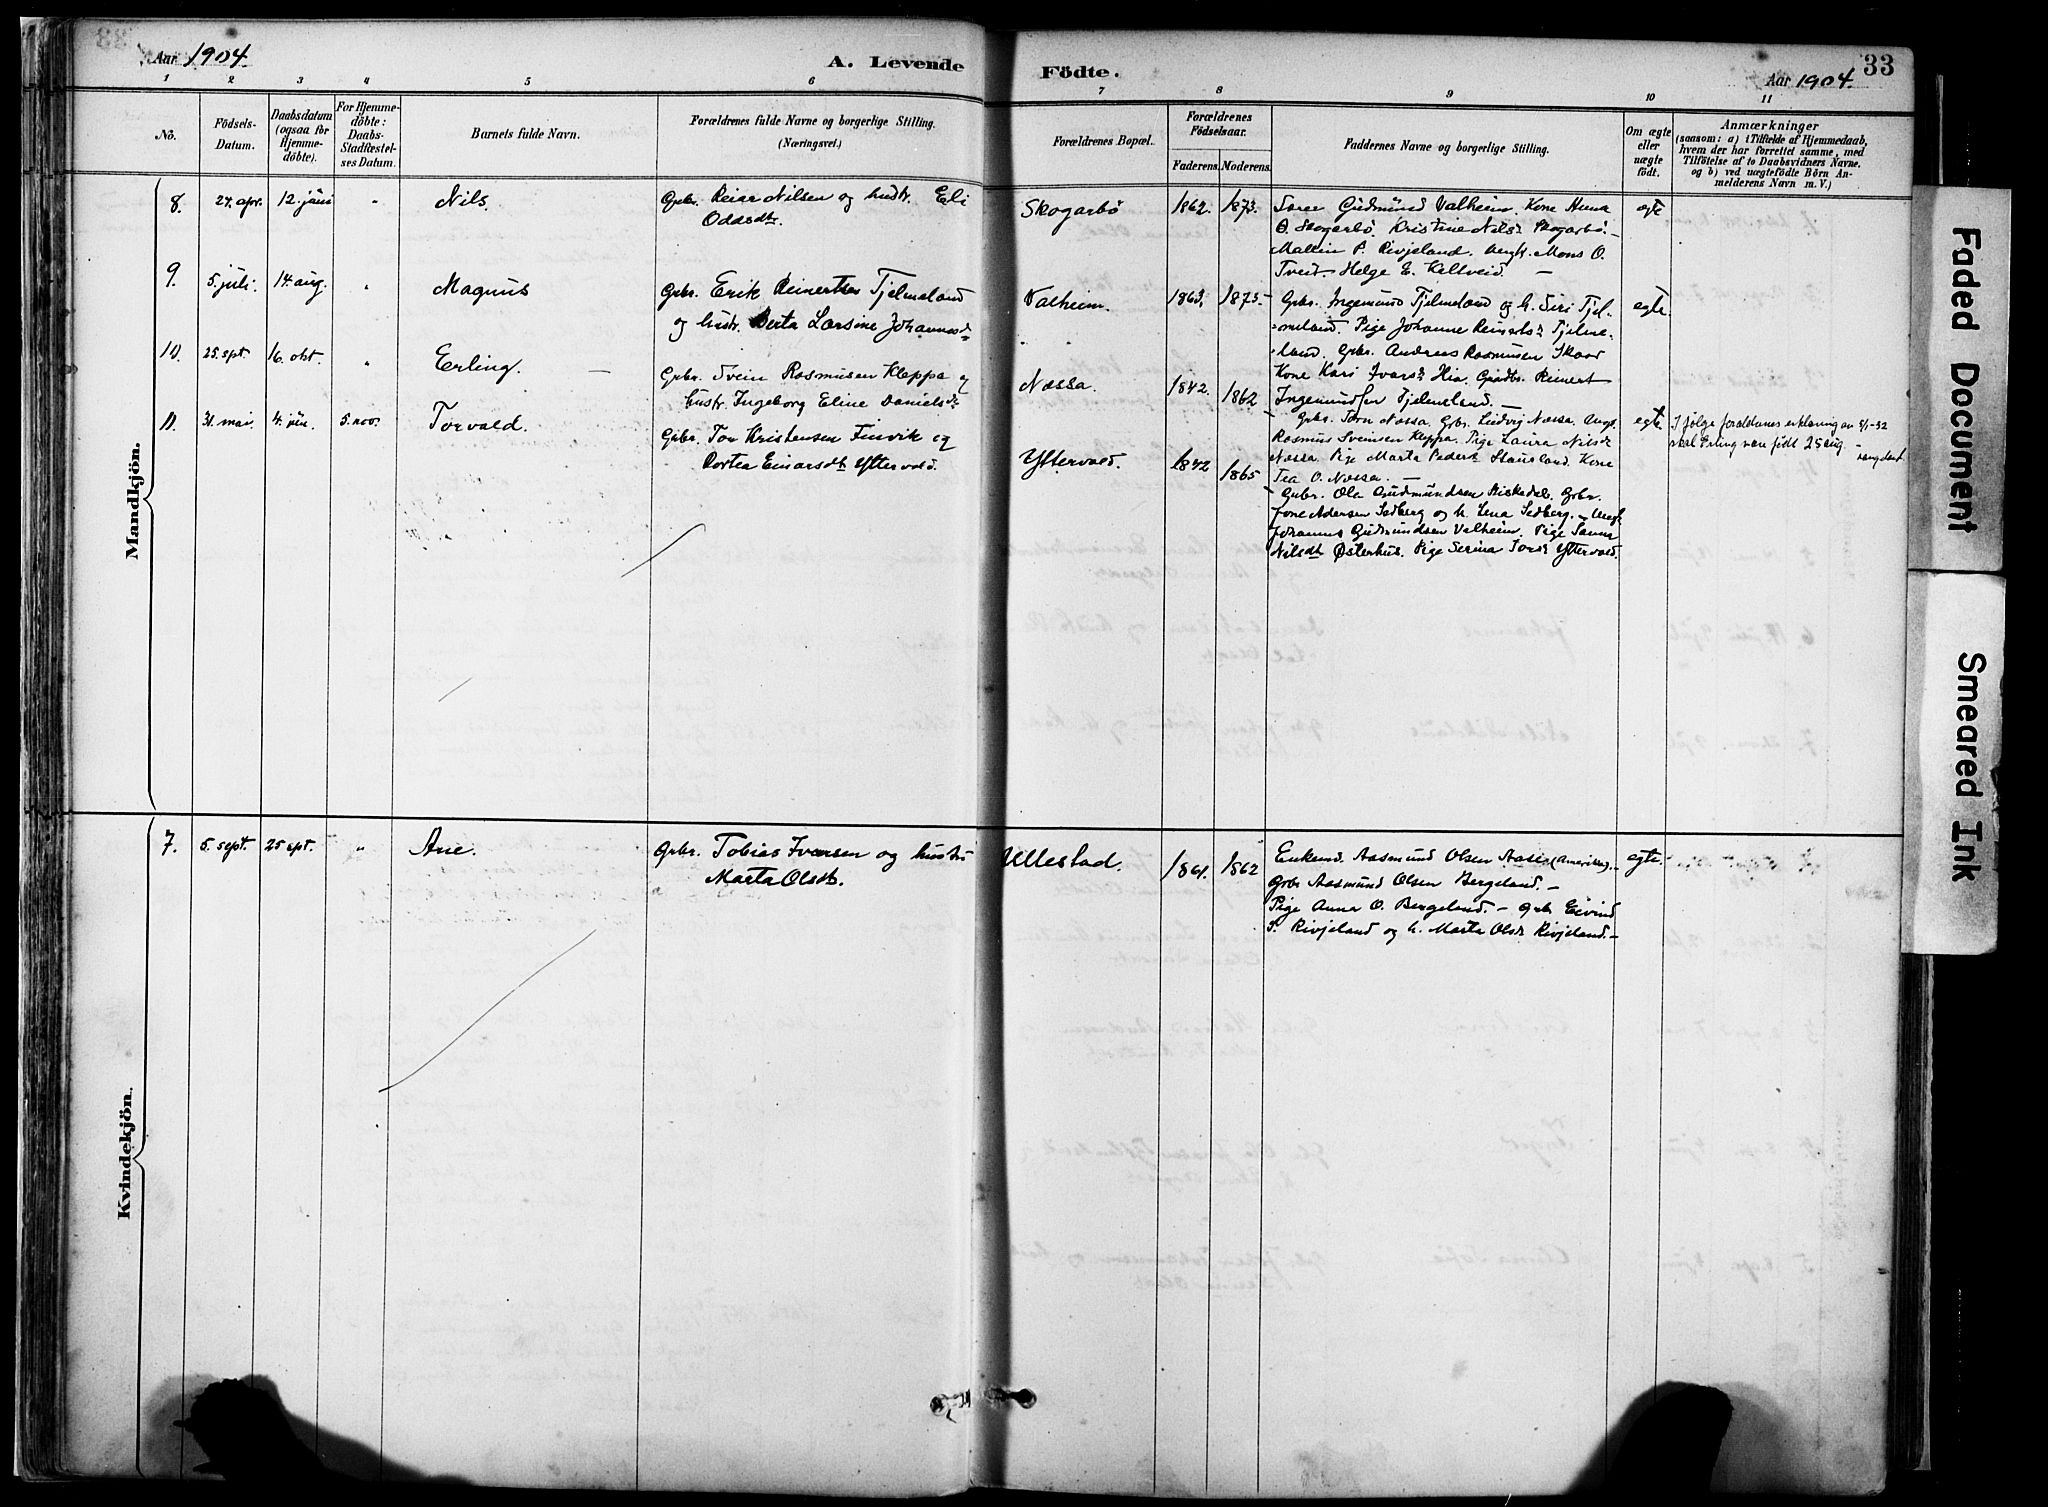 33
Aar 1904.
A. Levende Födte.
Aar 1904.
1 2 3 4 5 6 7 8 9 10 11
No.
Födsels-
Datum.
Daabsdatum
(ogsaa for
Hjemme-
döbte).
For Hjemme-
döbte:
Daabs-
Stadfæstel-
ses Datum.
Barnets fulde Navn.
Forældrenes fulde Navne og borgerlige Stilling.
(Næringsvei.)
Forældrenes Bopæl.
Forældrenes
Födselsaar.
Faderens. Moderens.
Faddernes Navne og borgerlige Stilling.
Om ægte
eller
uægte
födt.
Anmærkninger
(saasom: a) i Tilfælde af Hjemmedaab,
hvem der har forrettet samme, med
Tilföielse af to Daabsvidners Navne.
og b) ved uægtefödte Börn An-
melderens Navn m. V.)
Mandkjön.
8. 27. apr. 12. juni " Nils.
Grbr. Reiar Nilsen og hustr. Eli
Oddsdtr.
Skogarbö 1862. 1873.
Gudmund Valheim. Kone
O. Skogarbö. Kristine Nilsdr Skogarbö. –
P. Rivjeland. Ungk. Mons O.
Tveit. Helge E. Keltveid. –
egte
9. 5. juli. 14. aug. " Magnus
Grbr. Erik Reinertsen Tjelmeland
og hustr. Berta Larsine Johannesd
Valheim. 1863. 1873. –
Grbr. Ingemund Tjelmeland og h. Siri Tjel-
meland. Pige Johanne Reinertsdr Tjelme-
land. Grbr. Andreas Rasmusen Skaar
Kone Kari Ivarsdr Hia. Reinert
Ingemundsen Tjelmeland. –
egte.
10. 25. spt. 16. okt. " Erling. –
Grbr. Svein Rasmusen Kleppa og
hustr. Ingeborg Eline Danielsdr
Næssa. 1842. 1862
Grbr. Torn Næssa. Grbr. Ludvig Næssa. Ungk.
Rasmus Svensen Kleppa. Pige Laura Nilsdr
Næssa. Pige Marta Pedersdr Kone
Tea O. Næssa. –
egte.
I følge foreldrenes erklæring av 5/1-32
skal Erling være født 25 aug.
11. 31. mai. 4. jun. 5. nov. Torvald.
Grbr. Tor Kristensen Finvik og
Dortea Einarsdtr Yttervold.
Yttervold. 1842 1865
Grbr. Ola Gudmundsen Hiskedal. Grbr.
Jone Adersen Sedberg og h. Lena Sedberg. – Ungk.
Johannes Gudmundsen Valheim. Pige Sanna
Nilsdtr Østerhus. Pige Serina Torsdr Yttervold.
Kvindekjön.
7. 5. sept. 25 spt. " Ane.
Grbr. Tobias Iversen og hustr
Marta Olsdtr.
Ullestad. 1861. 1862
Enkemd. Aasmund Olsen Aase (Amerika). –
Grbr Aasmund Olsen Bergeland. –
Pige Anna O. Bergeland. – Grbr Eivind
S. Rivjeland og h. Marta Olsdr Rivjeland. –
egte.
Faded Document
Smeared Ink